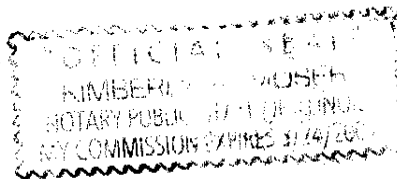 "OFFICIAL SEAL"
KIMBERLY MOSER
NOTARY PUBLIC STATE OF ILLINOIS
MY COMMISSION EXPIRES